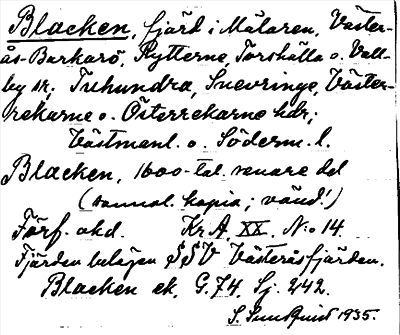 Blacken, fjärd i Mälaren, Väster-
ås-Barkarö, Rytterne, Torshälla o. Vall-
by sn; Tuhundra, Snevringe, Väster-
rekarne o. Österrekarne hdr;
Västmanl. o. Söderm. l.
Blacken, 1600-tal. senare del
(sannol. kopia; vänd!)
Förf. okd. Kr.A. XX. N:o 14.
Fjärden belägen SSV Västeråsfjärden.
Blacken ek. G.74. Sj. 242.
S. Sundquist 1935.